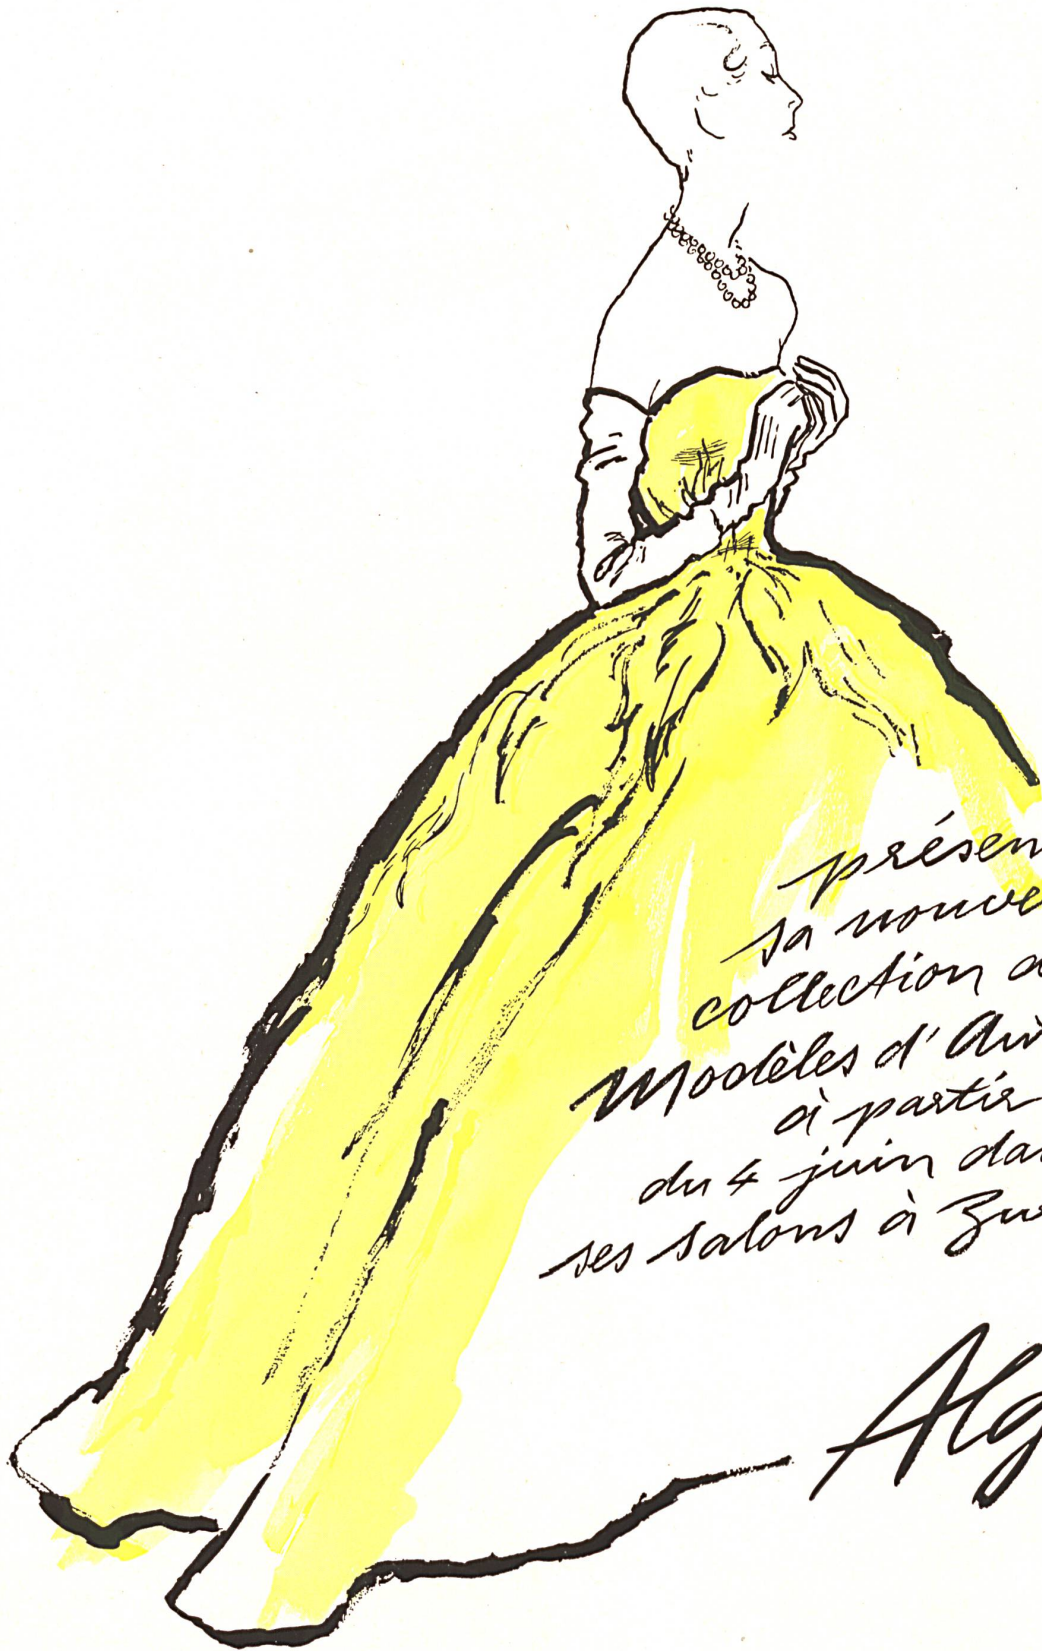 présen
sa nouve
collection d
Modèles d'
à partir
du 4 juin da
ses salons à Zur
Alg